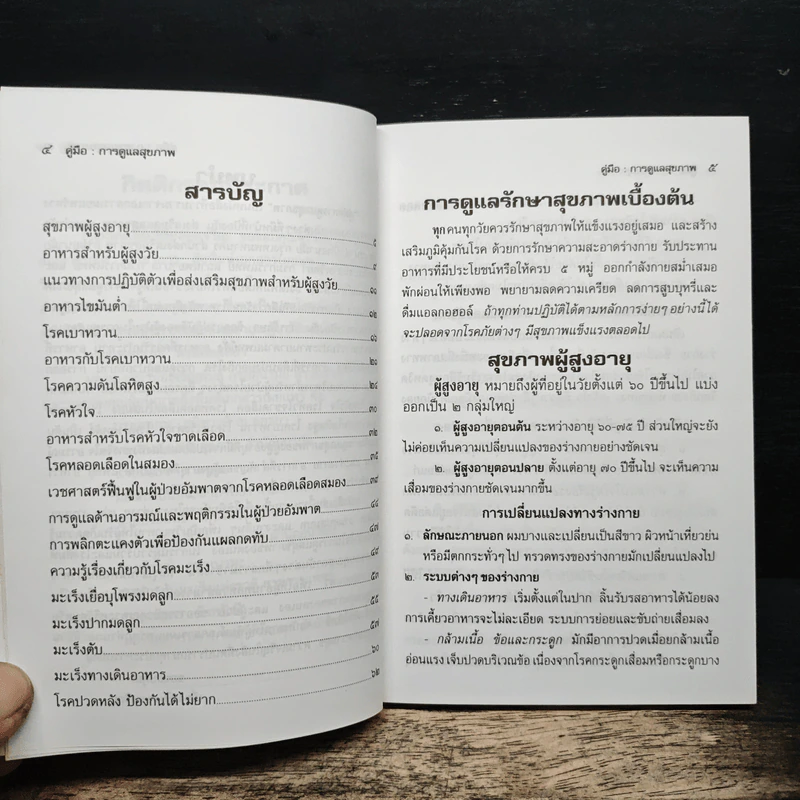 ๔ คู่มือ : การดูแลสุขภาพ
สารบัญ
สุขภาพผู้สูงอายุ ๕
อาหารสำหรับผู้สูงวัย ๙
แนวทางการปฏิบัติตัวเพื่อส่งเสริมสุขภาพสำหรับผู้สูงวัย ๑๐
อาหารไขมันต่ำ ๑๒
โรคเบาหวาน ๑๖
อาหารกับโรคเบาหวาน ๒๑
โรคความดันโลหิตสูง ๒๔
โรคหัวใจ ๓๐
อาหารสำหรับโรคหัวใจขาดเลือด ๓๒
โรคหลอดเลือดในสมอง ๓๕
เวชศาสตร์ฟื้นฟูในผู้ป่วยอัมพาตจากโรคหลอดเลือดสมอง ๓๙
การดูแลด้านอารมณ์และพฤติกรรมในผู้ป่วยอัมพาต ๔๔
การพลิกตะแคงตัวเพื่อป้องกันแผลกดทับ ๔๗
ความรู้เรื่องเกี่ยวกับโรคมะเร็ง ๔๙
มะเร็งเยื่อบุโพรงมดลูก ๕๓
มะเร็งปากมดลูก ๕๕
มะเร็งตับ ๕๗
มะเร็งทางเดินอาหาร ๖๐
โรคปวดหลัง ป้องกันได้ไม่ยาก ๖๒
คู่มือ : การดูแลสุขภาพ ๕
การดูแลรักษาสุขภาพเบื้องต้น
ทุกคนทุกวัยควรรักษาสุขภาพให้แข็งแรงอยู่เสมอ และสร้าง
เสริมภูมิคุ้มกันโรค ด้วยการรักษาความสะอาดร่างกาย รับประทาน
อาหารที่มีประโยชน์หรือให้ครบ ๕ หมู่ ออกกำลังกายสม่ำเสมอ
พักผ่อนให้เพียงพอ พยายามลดความเครียด ลดการสูบบุหรี่และ
ดื่มแอลกอฮอล์ ถ้าทุกท่านปฏิบัติได้ตามหลักการง่ายๆ อย่างนี้ได้
จะปลอดจากโรคภัยต่างๆ มีสุขภาพแข็งแรงตลอดไป
สุขภาพผู้สูงอายุ
ผู้สูงอายุ หมายถึงผู้ที่อยู่ในวัยตั้งแต่ ๖๐ ปีขึ้นไป แบ่ง
ออกเป็น ๒ กลุ่มใหญ่
๑. ผู้สูงอายุตอนต้น ระหว่างอายุ ๖๐-๗๕ ปี ส่วนใหญ่จะยัง
ไม่ค่อยเห็นความเปลี่ยนแปลงของร่างกายอย่างชัดเจน
๒. ผู้สูงอายุตอนปลาย ตั้งแต่อายุ ๗๐ ปีขึ้นไป จะเห็นความ
เสื่อมของร่างกายชัดเจนมากขึ้น
การเปลี่ยนแปลงทางร่างกาย
๑. ลักษณะภายนอก ผมบางและเปลี่ยนเป็นสีขาว ผิวหน้าเหี่ยวย่น
หรือมีตกกระทั่วๆ ไป ทรวดทรงของร่างกายมักเปลี่ยนแปลงไป
๒. ระบบต่างๆ ของร่างกาย
- ทางเดินอาหาร เริ่มตั้งแต่ในปาก ลิ้นรับรสอาหารได้น้อยลง
การเคี้ยวอาหารจะไม่ละเอียด ระบบการย่อยและขับถ่ายเสื่อมลง
- กล้ามเนื้อ ข้อและกระดูก มักมีอาการปวดเมื่อยกล้ามเนื้อ
อ่อนแรง เจ็บปวดบริเวณข้อ เนื่องจากโรคกระดูกเสื่อมหรือกระดูกบาง